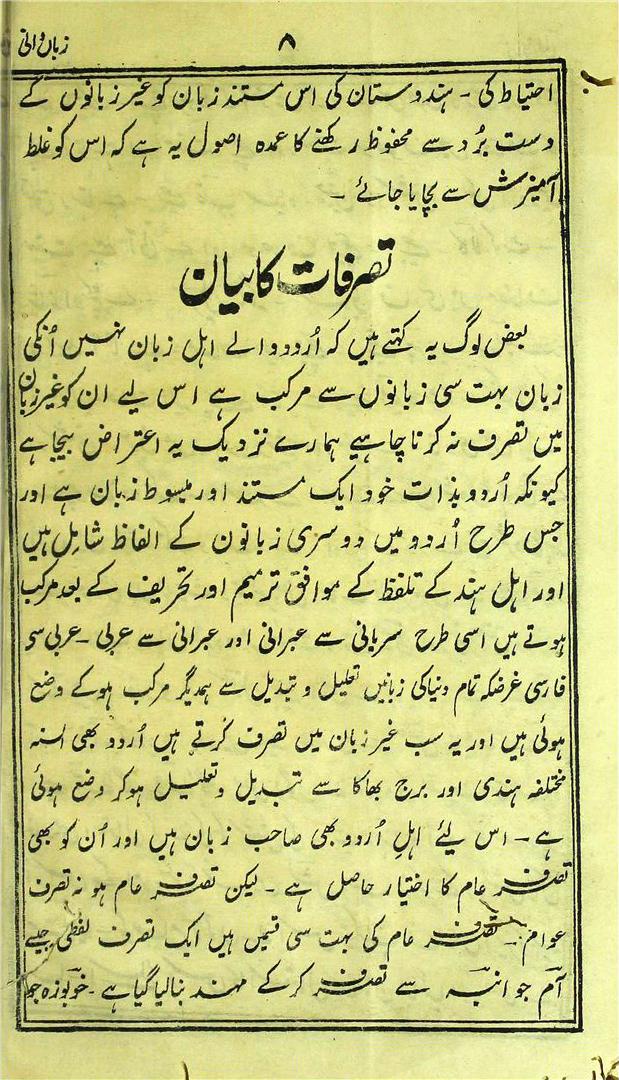 زباندانی ۸
احتیاط کی - ہندوستان کی اس مستند زبان کو غیر زبانوں کے
دست بُرد سے محفوظ رکھنے کا عمدہ اصول یہ ہے کہ اس کو غلط
آمیزش سے بچایا جائے -
تصرفات کا بیان
بعض لوگ یہ کہتے ہیں کہ اُردو والے اہل زبان نہیں اُنکی
زبان بہت سی زبانوں سے مرکب ہے اس لیے ان کو غیر زبان
میں تصرف نہ کرنا چاہیے ہمارے نزدیک یہ اعتراض بیجا ہے
کیونکہ اُردو بذات خود ایک مستند اور مبسوط زبان ہے اور
جس طرح اُردو میں دوسری زبانون کے الفاظ شامل ہیں
اور اہل ہند کے تلفظ کے موافق ترمیم اور تحریف کے بعد مرکب
ہوتے ہیں اسی طرح سریانی سے عبرانی اور عبرانی سے عربی - عربی سے
فارسی غرضکہ تمام دنیا کی زبانیں تعلیل و تبدیل سے ہمدیگر مرکب ہوکے وضع
ہوئی ہیں اور یہ سب غیر زبان میں تصرف کرتے ہیں اُردو بھی السنہ
مختلفہ ہندی اور برج بھاکا سے تبدیل و تعلیل ہوکر وضع ہوئی
ہے - اس لیئے اہلِ اُردو بھی صاحب زبان ہیں اور اُن کو بھی
تصرف عام کا اختیار حاصل ہے - لیکن تصرف عام ہو نہ تصرف
عوام - تصرف عام کی بہت سی قسمیں ہیں ایک تصرف لفظی جیسے
آم جو انبہ سے تصرف کرکے مہند بنالیا گیا ہے - خربوزہ جو